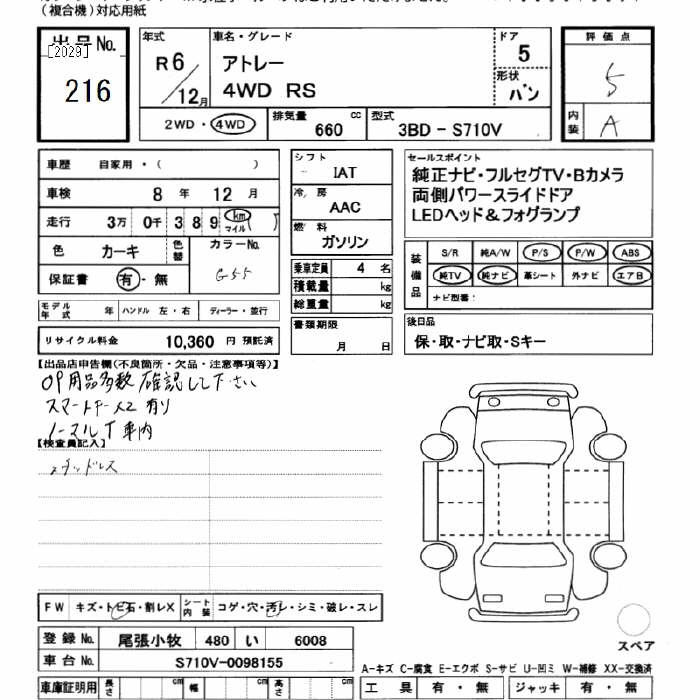 （複合機）対応用紙
出品No.
[2029]
216
年式
R6
12月
車名・グレード
アトレー
4WD RS
ドア
5
形状
バン
評価点
5
内装
A
2WD・4WD
排気量
660
cc
型式
3BD－S710V
車歴 自家用・( )
車検 8 年 12 月
走行 3万 0千 3 8 9 km マイル ( )
色 カーキ 色替 カラーNo. G55
保証書 有・無
モデル年式 年 ハンドル 左・右 ディーラー・並行
リサイクル料金 10,360 円 預託済
シフト
IAT
冷房
AAC
燃料
ガソリン
乗車定員 4 名
積載量 kg
総重量 kg
書類期限
月 日
セールスポイント
純正ナビ・フルセグTV・Bカメラ
両側パワースライドドア
LEDヘッド＆フォグランプ
装備品
S/R 純A/W P/S P/W ABS
純TV 純ナビ 革シート 外ナビ エアB
ナビ型番：
後日品
保・取・ナビ取・Sキー
【出品店申告欄(不良箇所・欠品・注意事項等)】
OP用品多数 確認して下さい
スマートキー入2 有り
ノーマルT 車内
【検査員記入】
スタッドレス
FW キズ・トビ石・割レX シート内装 コゲ・穴・汚レ・シミ・破レ・スレ
登録No. 尾張小牧 480 い 6008
車台No. S710V-0098155
車庫証明用 長さ cm 幅 cm 高さ cm
スペア
A－キズ C－腐食 E－エクボ S－サビ U－凹ミ W－補修 XX－交換済
工具 有・無 ジャッキ 有・無